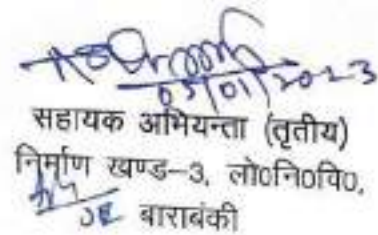 05/01/2023
सहायक अभियन्ता (तृतीय)
निर्माण खण्ड-3, लो०नि०वि०,
JE बाराबंकी